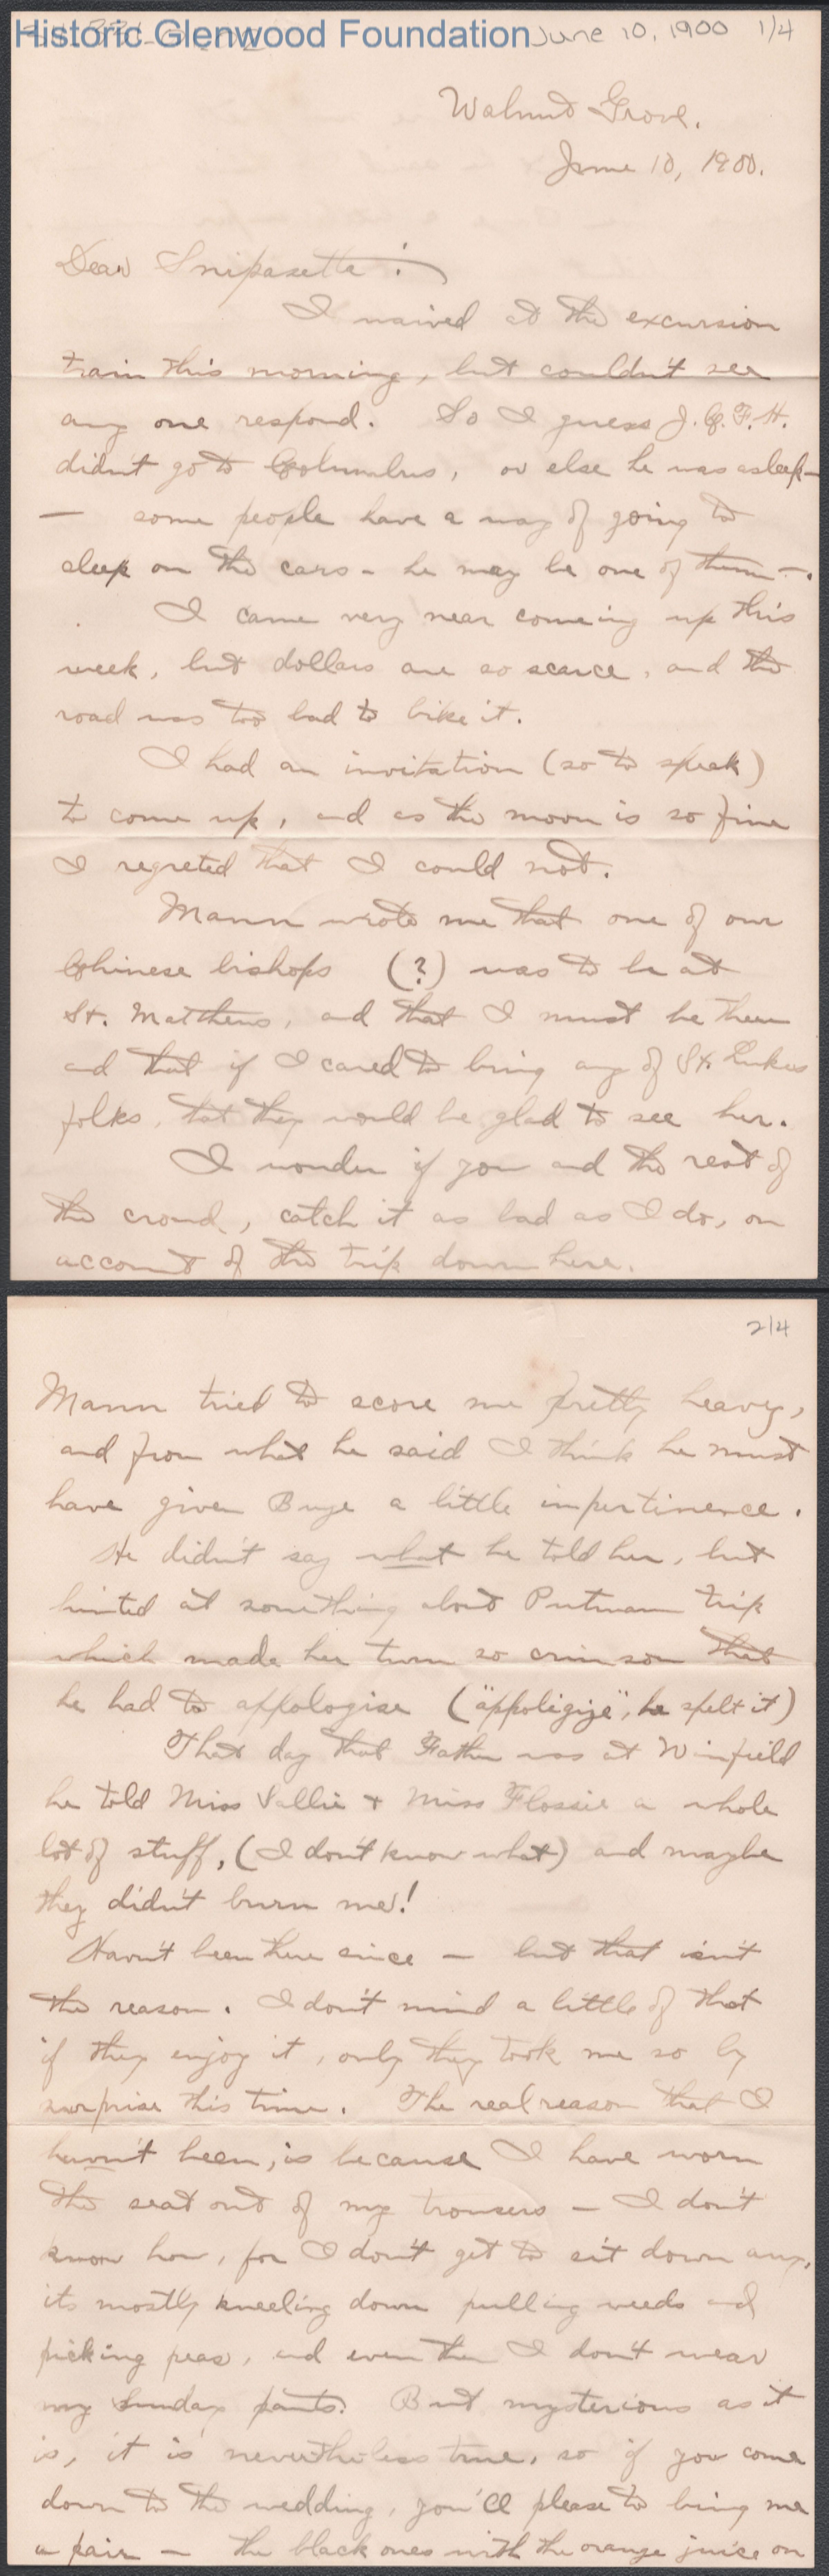 Historic Glenwood Foundation June 10, 1900 1/4
Walnut Grove.
June 10, 1900.
Dear Snipasette:
I waived at the excursion
train this morning, but couldn't see
any one respond. So I guess J. C. F. H.
didn't go to Columbus, or else he was asleep—
— some people have a way of going to
sleep on the cars - he may be one of them —.
I came very near comeing up this
week, but dollars are so scarce, and the
road was too bad to bike it.
I had an invitation (so to speak)
to come up, and as the moon is so fine
I regreted that I could not.
Mann wrote me that one of our
Chinese bishops (?) was to be at
St. Matthews, and that I must be there
and that if I cared to bring any of St. Lukes
folks, that they would be glad to see her.
I wonder if you and the rest of
the crowd, catch it as bad as I do, on
account of the trip down here.
2/4
Mann tried to score me pretty heavy,
and from what he said I think he must
have given Buge a little impertinence.
He didn't say what he told her, but
hinted at something about Putnam trip
which made her turn so crimson that
he had to appologise ("appoligize", he spelt it)
That day that Father was at Winfield
he told Miss Sallie + Miss Flossie a whole
lot of stuff, (I don't know what) and maybe
they didn't burn me!
Havn't been there since — but that isn't
the reason. I don't mind a little of that
if they enjoy it, only they took me so by
surprise this time. The real reason that I
havn't been, is because I have worn
the seat out of my trousers — I don't
know how, for I don't get to sit down any,
its mostly kneeling down pulling weeds and
picking peas, and even then I don't wear
my Sunday pants. But mysterious as it
is, it is nevertheless true, so if you come
down to the wedding, you'll please to bring me
a pair — the black ones with the orange juice on